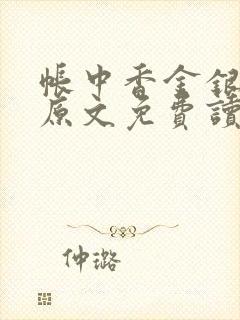 帳中香金銀
原文免費讀
仲璐